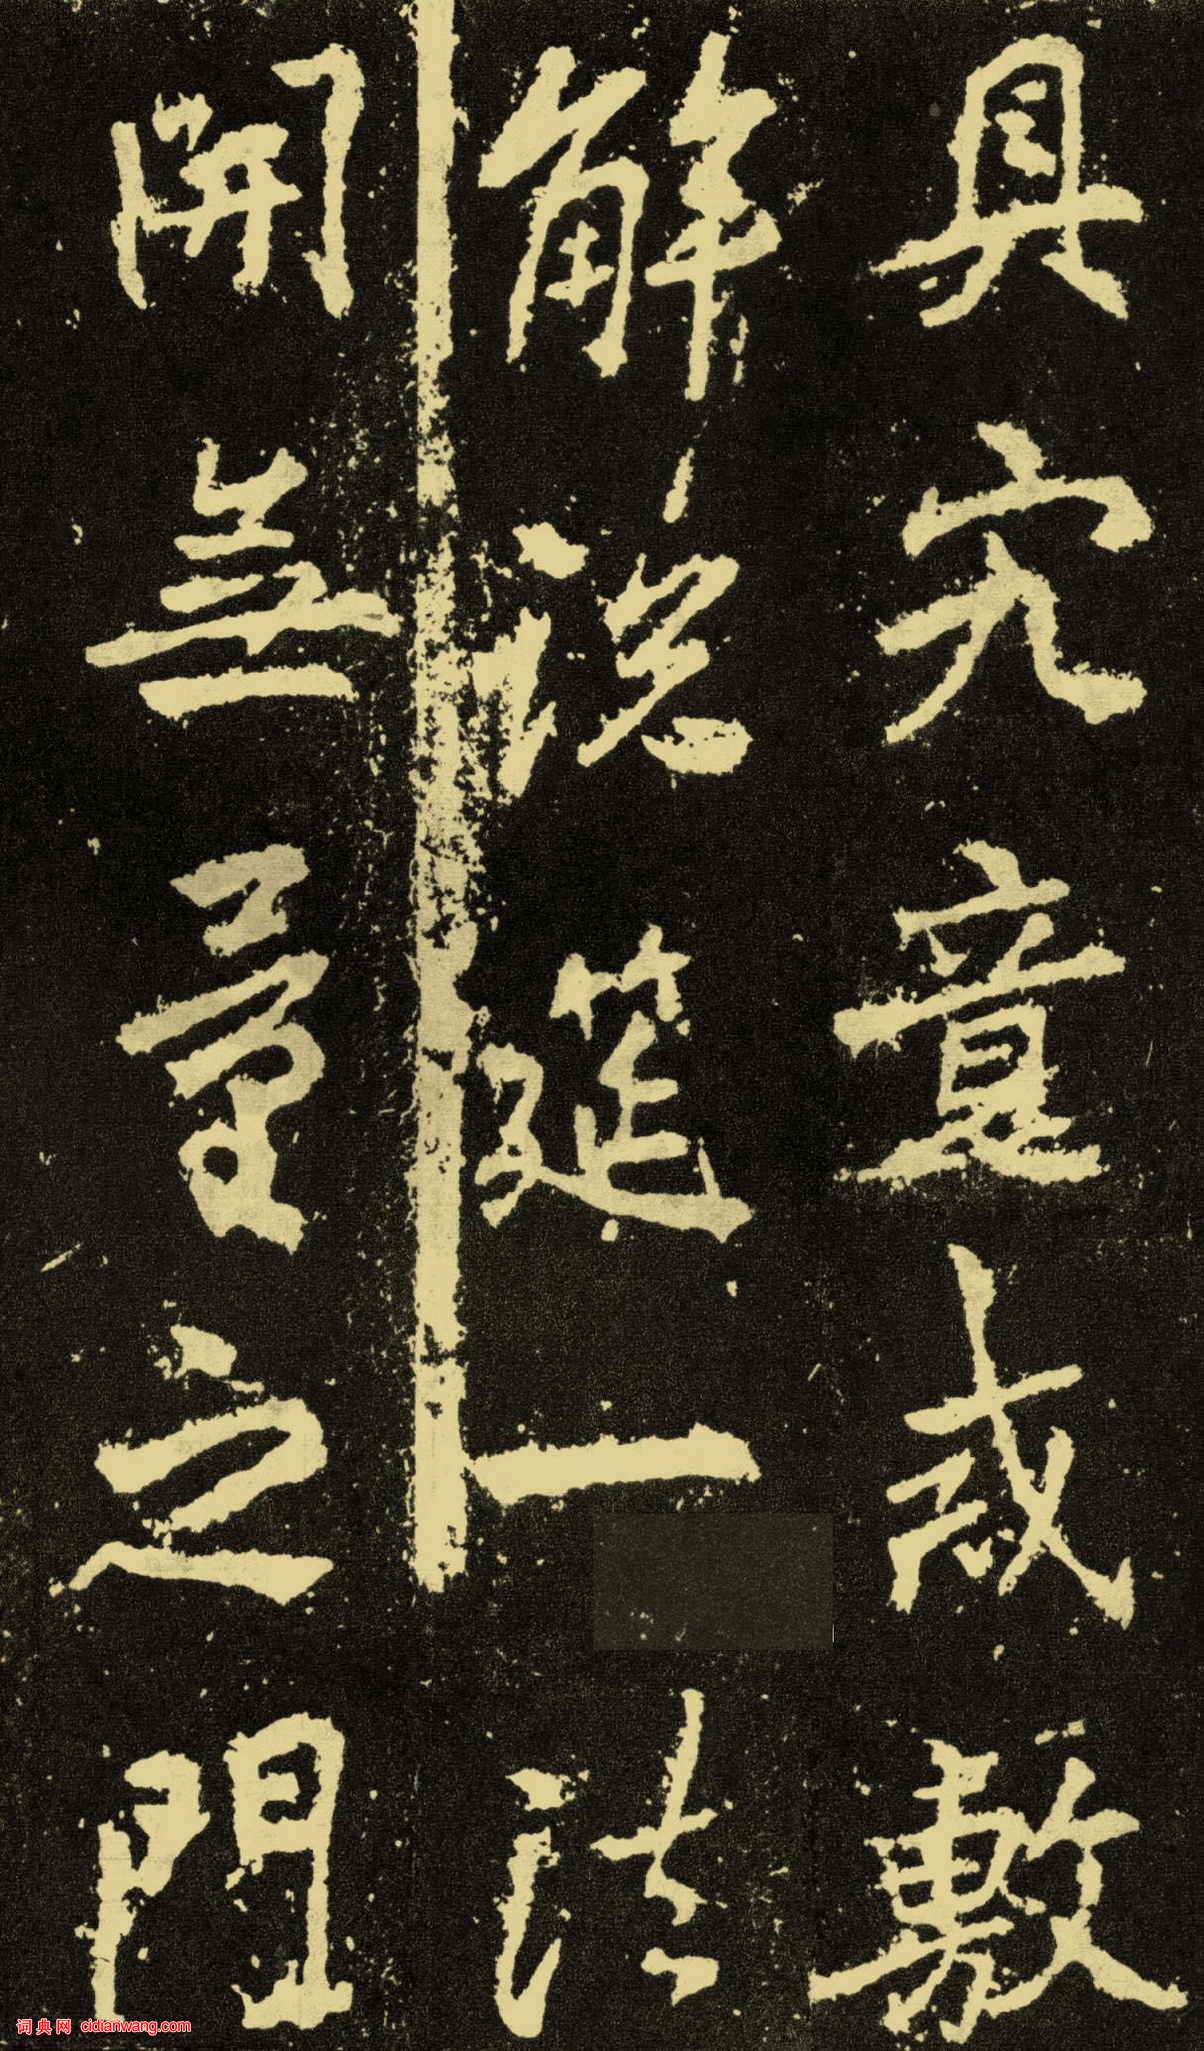 具究竟戒敷
解脱筵一法
開無量之門
词典网 cidianwang.com